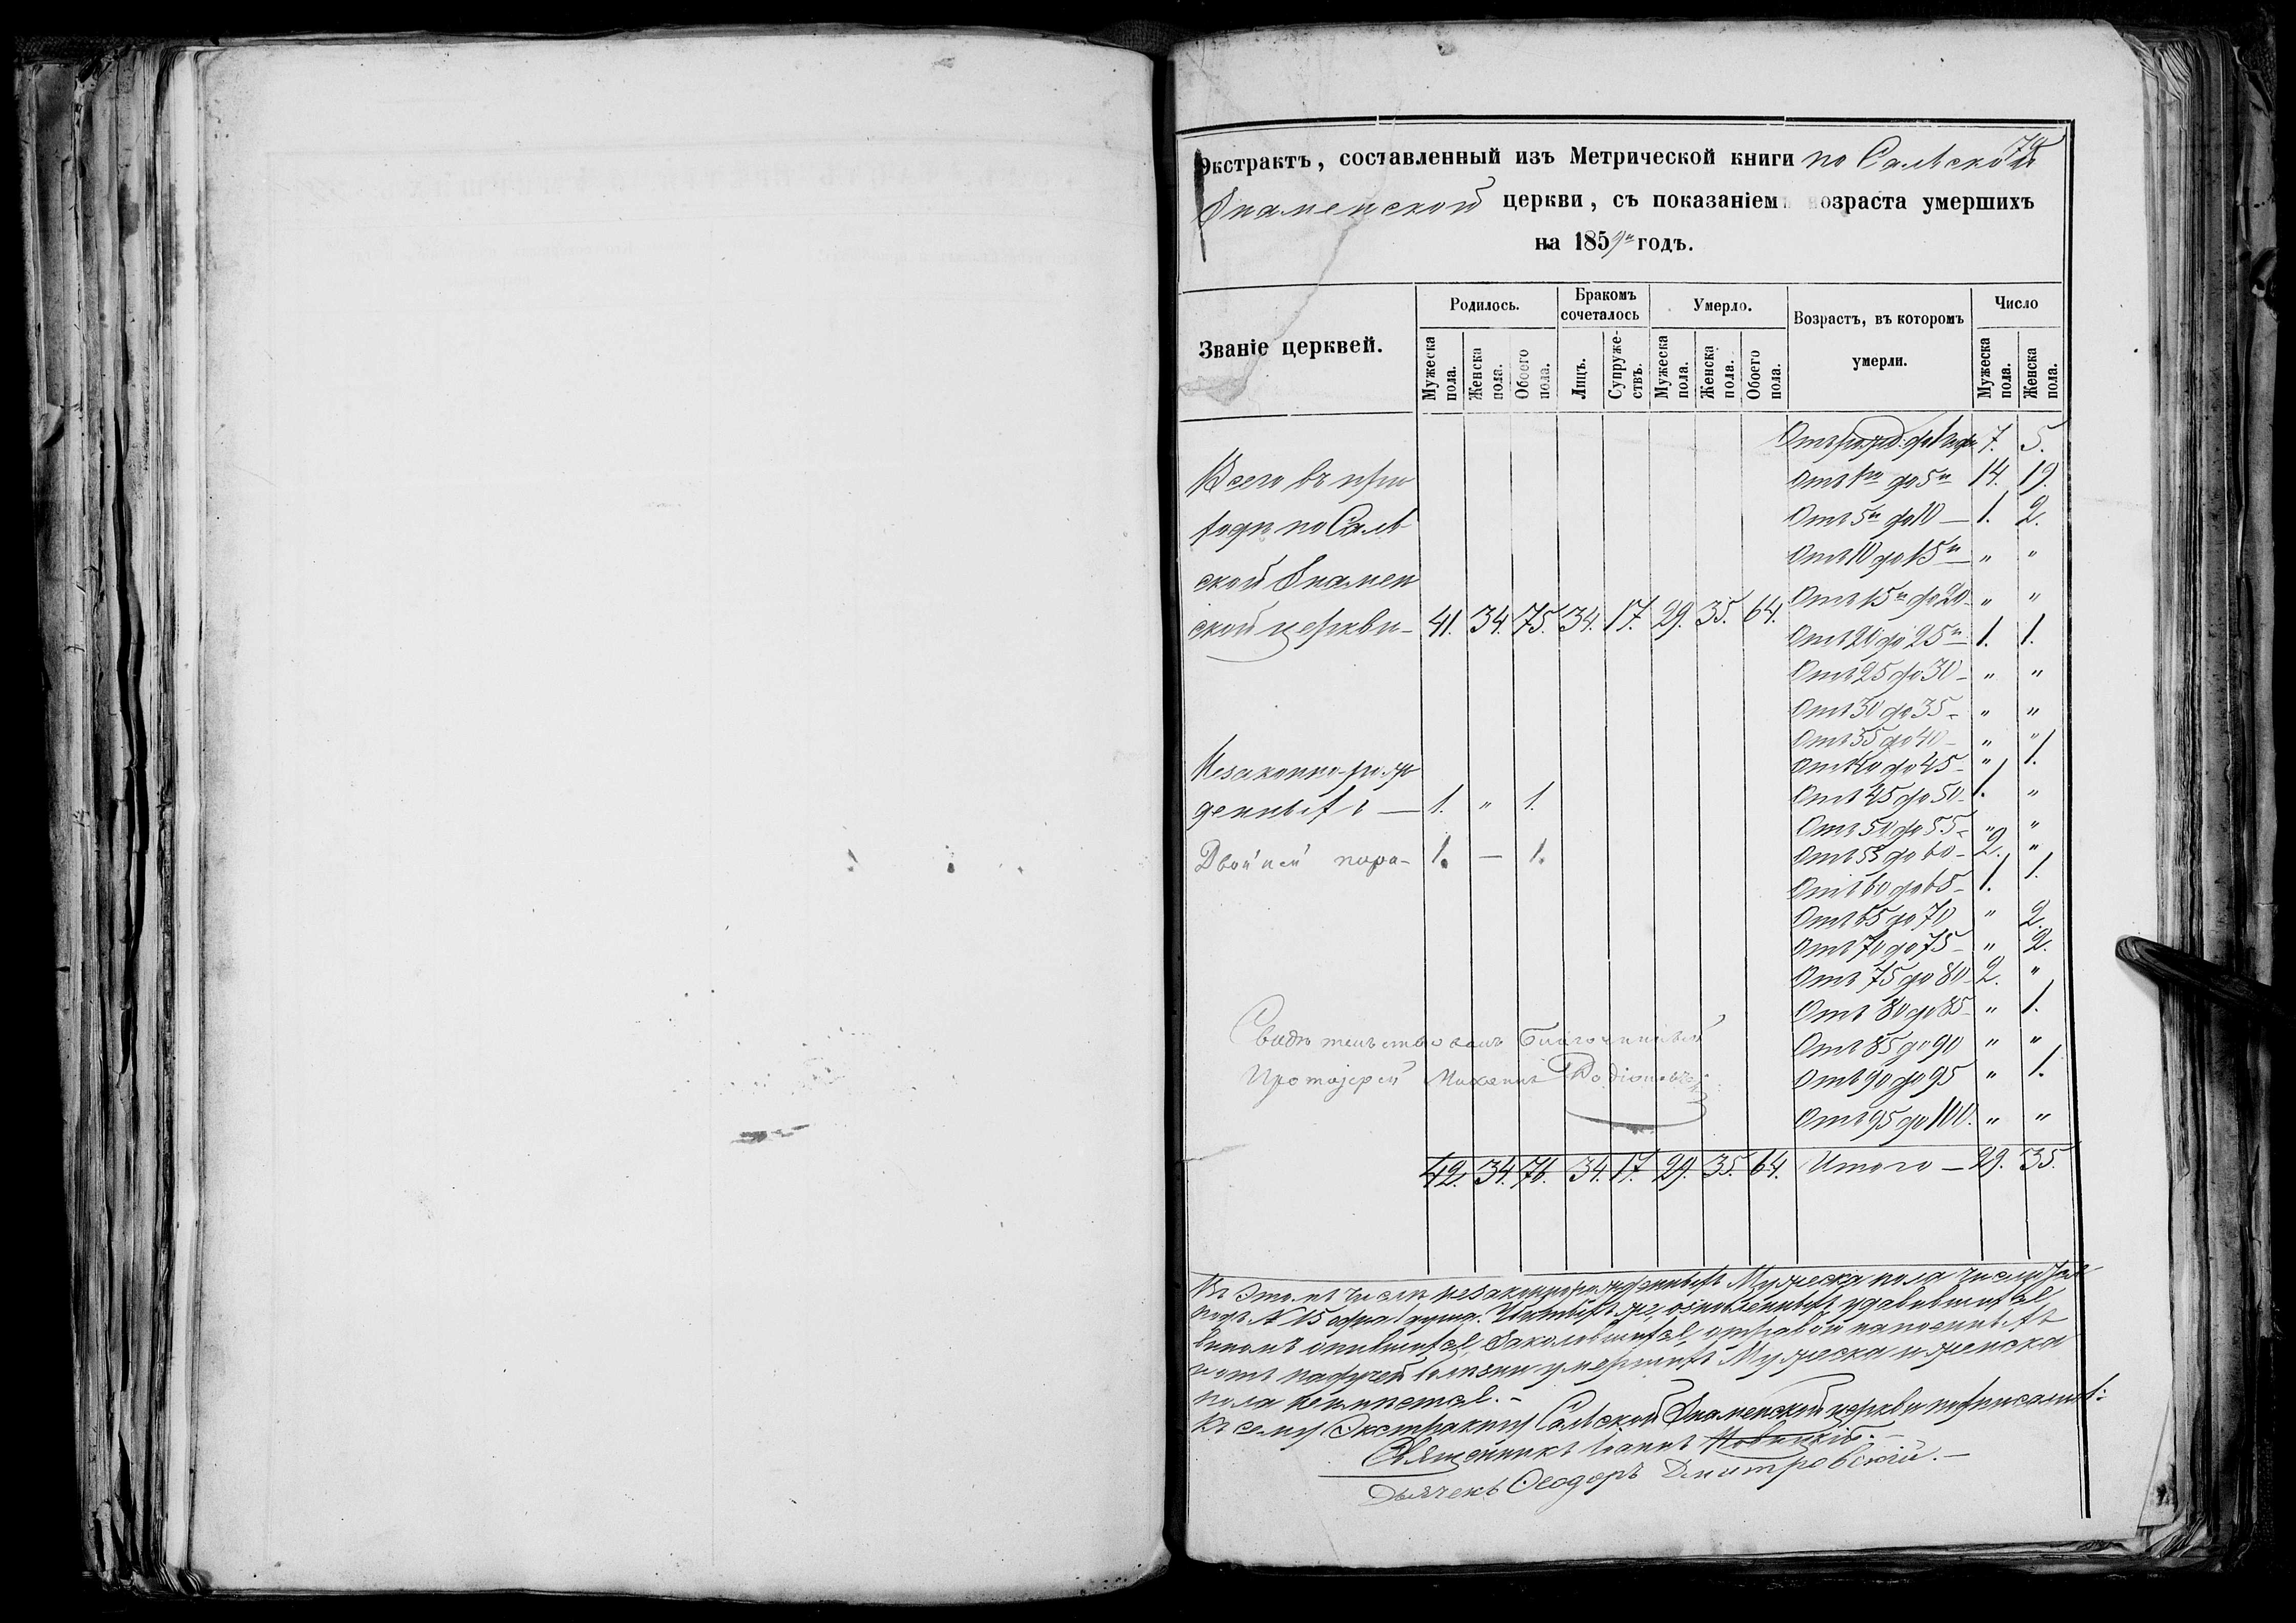 79
Экстрактъ, составленный изъ Метрической книги по Сальской
Знаменской церкви, съ показаніемъ возраста умершихъ
на 1859й годъ.
Званіе церквей.
Родилось.
Бракомъ сочеталось
Умерло.
Возрастъ, въ которомъ умерли.
Число
Мужеска пола.
Женска пола.
Обоего пола.
Лицъ.
Супружествъ.
Мужеска пола.
Женска пола.
Обоего пола.
Мужеска пола.
Женска пола.
Всего въ при
ходѣ по Саль
ской Знамен
ской церкви – 41. 34. 75. 34. 17. 29. 35. 64.
Незаконно-рож
денныхъ — 1. " 1.
Двойней пара – 1. — 1.
Отъ рожд: до 1 7. 5.
Отъ 1го до 5и 14. 19.
Отъ 5и до 10 — 1. 2.
Отъ 10 до 15и — " "
Отъ 15и до 20 – " "
Отъ 20 до 25и – 1. 1.
Отъ 25 до 30 – " "
Отъ 30 до 35 – " "
Отъ 35 до 40 – " "
Отъ 40 до 45 – " 1.
Отъ 45 до 50 – 1. "
Отъ 50 до 55 – " "
Отъ 55 до 60 – 2. "
Отъ 60 до 65 – 1. 1.
Отъ 65 до 70 " 2.
Отъ 70 до 75 – " 2.
Отъ 75 до 80 2. "
Отъ 80 до 85 " 1.
Отъ 85 до 90 " "
Отъ 90 до 95 " 1.
Отъ 95 до 100. " "
Свидѣтельствовалъ Благочинный
Протоіерей Михаилъ
42. 34. 76. 34. 17. 29. 35. 64. Итого — 29. 35.
Въ этомъ числѣ незаконнорожденныхъ Мужеска пола числится
подъ № 15 одна душа. же, удавившихся
виномъ опившихся, Заколовшихся, отравой напоенныхъ
и отъ падучей болѣзни умершихъ Мужеска и женска
пола неимѣется. –
Къ сему Экстракту Сальской Знаменской церкви подписались:
Священникъ Іоаннъ Новицкій. –
Дьячекъ Ѳеодоръ Дмитровскій. –